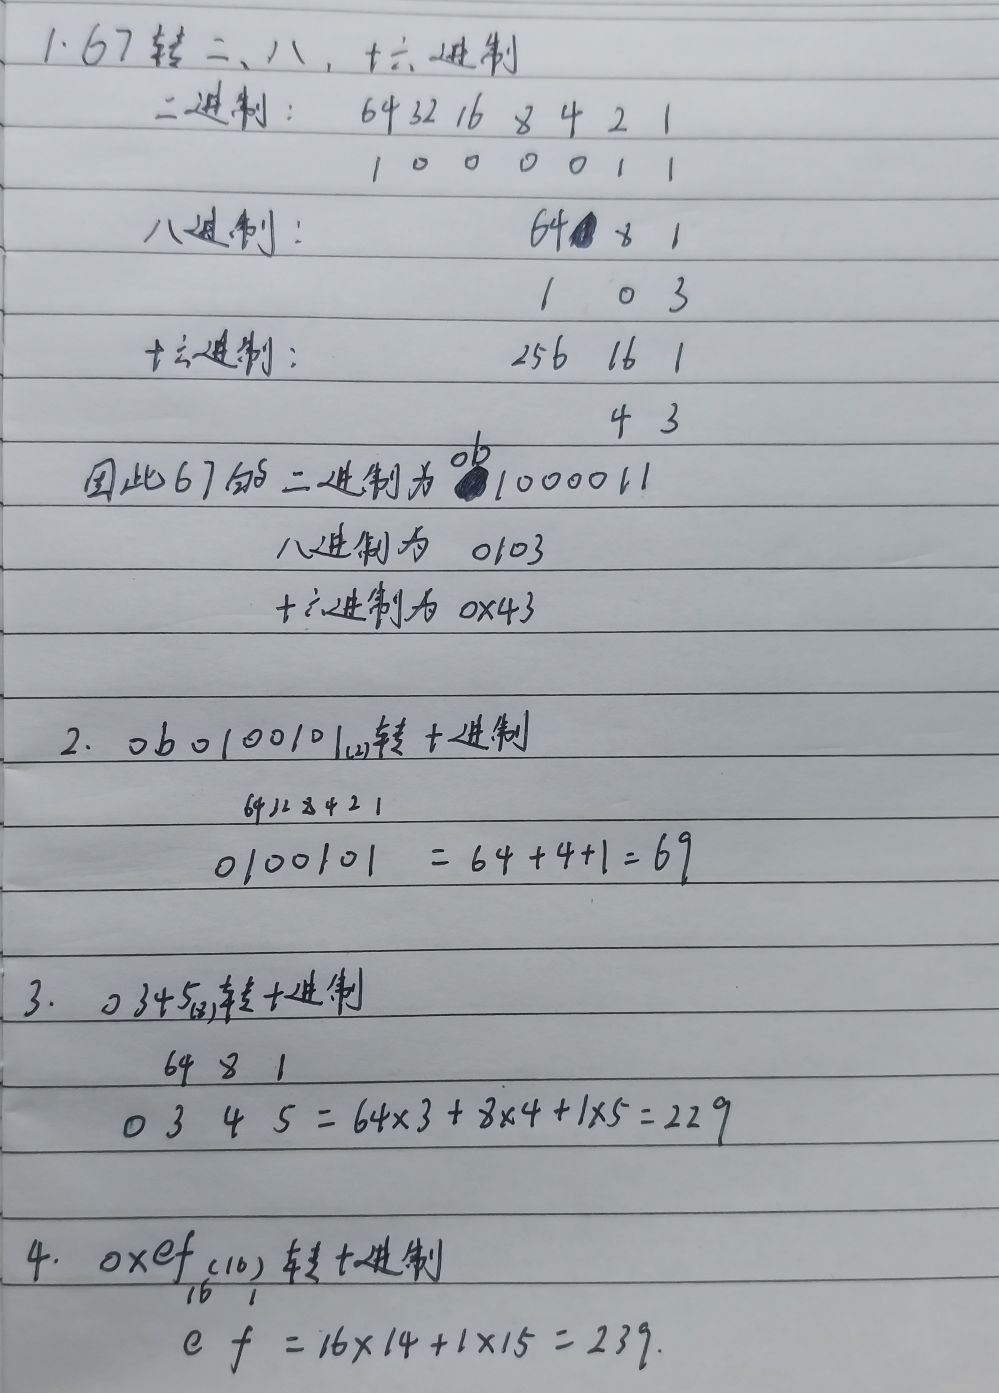 1. 67转二、八、十六进制
二进制： 64 32 16 8 4 2 1
1 0 0 0 0 1 1
八进制： 64 8 1
1 0 3
十六进制： 256 16 1
4 3
因此67的二进制为0b1000011
八进制为 0103
十六进制为 0x43
2. 0b0100101(2)转十进制
64 32 8 4 2 1
0100101 = 64+4+1=69
3. 0345(8)转十进制
64 8 1
0 3 4 5 = 64×3+8×4+1×5=229
4. 0xef(16)转十进制
16 1
e f = 16×14+1×15=239.